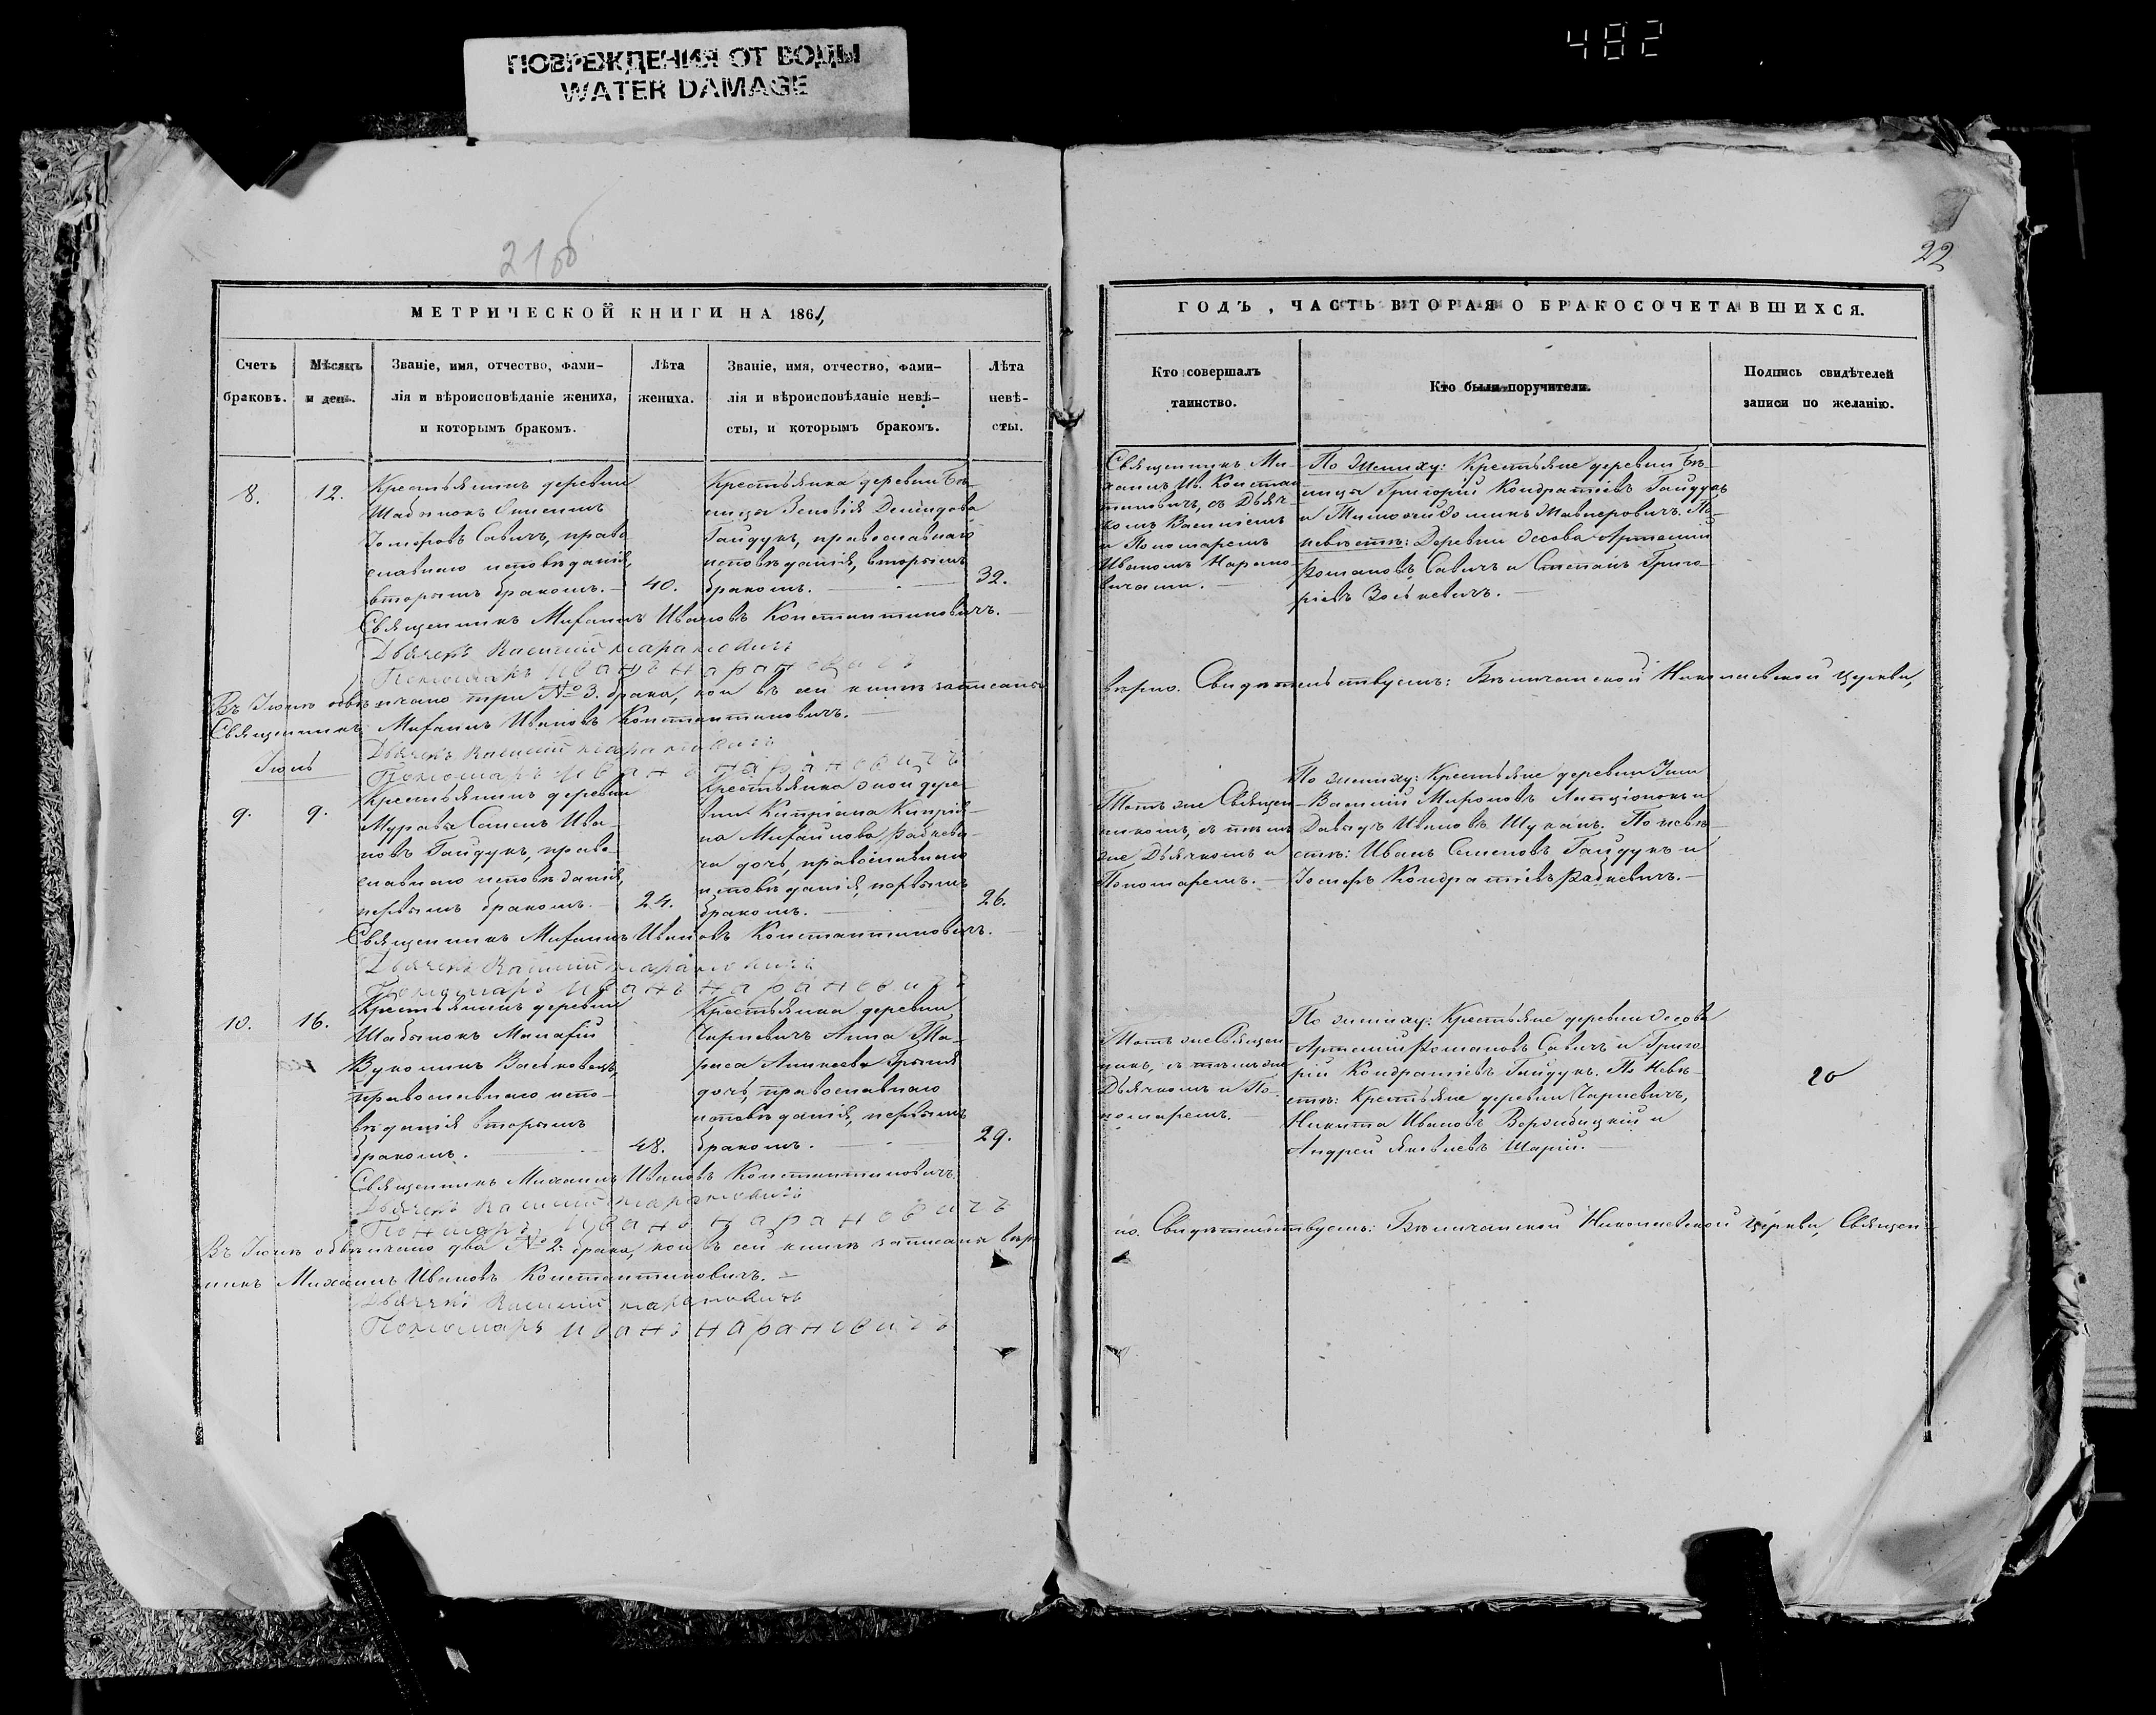 482
ПОВРЕЖДЕНИЯ ОТ ВОДЫ
WATER DAMAGE
22
МЕТРИЧЕСКОЙ КНИГИ НА 1861,
Счетъ браковъ.
Мѣсяцъ и день.
Званіе, имя, отчество, фами-
лія и вѣроисповѣданіе жениха,
и которымъ бракомъ.
Лѣта
жениха.
Званіе, имя, отчество, фами-
лія и вѣроисповѣданіе невѣ-
сты, и которымъ бракомъ.
Лѣта
невѣ-
сты.
8.
12.
Крестьянинъ деревни
Шабынокъ
Іосифовъ Савичъ, право
славнаго исповѣданія,
вторымъ бракомъ.
40.
Крестьянка деревни Бѣ-
Зеновія Демидова
Гайдукъ, православнаго
исповѣданія, вторымъ
бракомъ.
32.
Священникъ Михаилъ Ивановъ Константиновичъ.
Дьячекъ Василий
Пономарь Иванъ Нарановичъ
Въ Іюнѣ обвѣнчано три № 3. брака, кои въ сей книгѣ записаны
Священникъ Михаилъ Ивановъ Константиновичъ.
Дьячекъ Василий
Пономарь Иванъ Нарановичъ
Іюль
9.
9.
Крестьянинъ деревни
Муравы Семенъ Ива-
новъ Гайдукъ, право-
славнаго исповѣданія,
первымъ бракомъ.
24.
Крестьянка дере-
вни Кипріана Кипрія-
на Михайлова Радкеви-
ча дочь, православнаго
исповѣданія, первымъ
бракомъ.
26.
Священникъ Михаилъ Ивановъ Константиновичъ.
Дьячекъ Василий
Пономарь Иванъ Нарановичъ
10.
16.
Крестьянинъ деревни
Шабынокъ
Васьковецъ,
православнаго испо-
вѣданія вторымъ
бракомъ.
48.
Крестьянка деревни
Чарневичъ Анна Та-
раса
дочь, православнаго
исповѣданія, первымъ
бракомъ.
29.
Священникъ Михаилъ Ивановъ Константиновичъ.
Дьячекъ Василий
Пономарь Иванъ Нарановичъ
Въ Іюлѣ обвѣнчано два № 2. брака, кои въ сей книгѣ записаны вѣр
никъ Михаилъ Ивановъ Константиновичъ.
Дьячекъ Василий
Пономарь Иванъ Нарановичъ
ГОДЪ, ЧАСТЬ ВТОРАЯ О БРАКОСОЧЕТАВШИХСЯ.
Кто совершалъ
таинство.
Кто были поручители.
Подпись свидѣтелей
записи по желанію.
Священникъ Ми-
хаилъ Ив. Констан
тиновичъ, съ Дьяч-
комъ Василіемъ
и Пономаремъ
Иваномъ Нарано-
вичами.
По жениху: Крестьяне деревни Бѣ-
Григорій Кондратіевъ Гайдукъ
и По
невѣстѣ: Деревни Осова Артемій
Романовъ Савичъ и Степанъ Григо-
ріевъ Воськевичъ.
вѣрно. Свидѣтельствуемъ: Николаевской церкви,
Тотъ же Священ-
никъ, съ тѣмъ
же Дьячкомъ и
Пономаремъ.
По жениху: Крестьяне деревни
Василій Мироновъ
Давыдъ Ивановъ Щукамъ. По невѣ-
стѣ: Иванъ Семеновъ Гайдукъ и
Іосифъ Кондратіевъ Радкевичъ.
Тотъ же Священ
никъ, съ тѣмъ же
Дьячкомъ и По-
номаремъ.
По жениху: Крестьяне деревни Осова
Артемій Романовъ Савичъ и Григо
рій Кондратіевъ Гайдукъ. По Невѣ-
стѣ: Крестьяне деревни Чарневичъ,
Никита Ивановъ и
Андрей Яковлевъ Шарий.
20
но. Свидѣтельствуемъ: Николаевской Церкви, Священ-